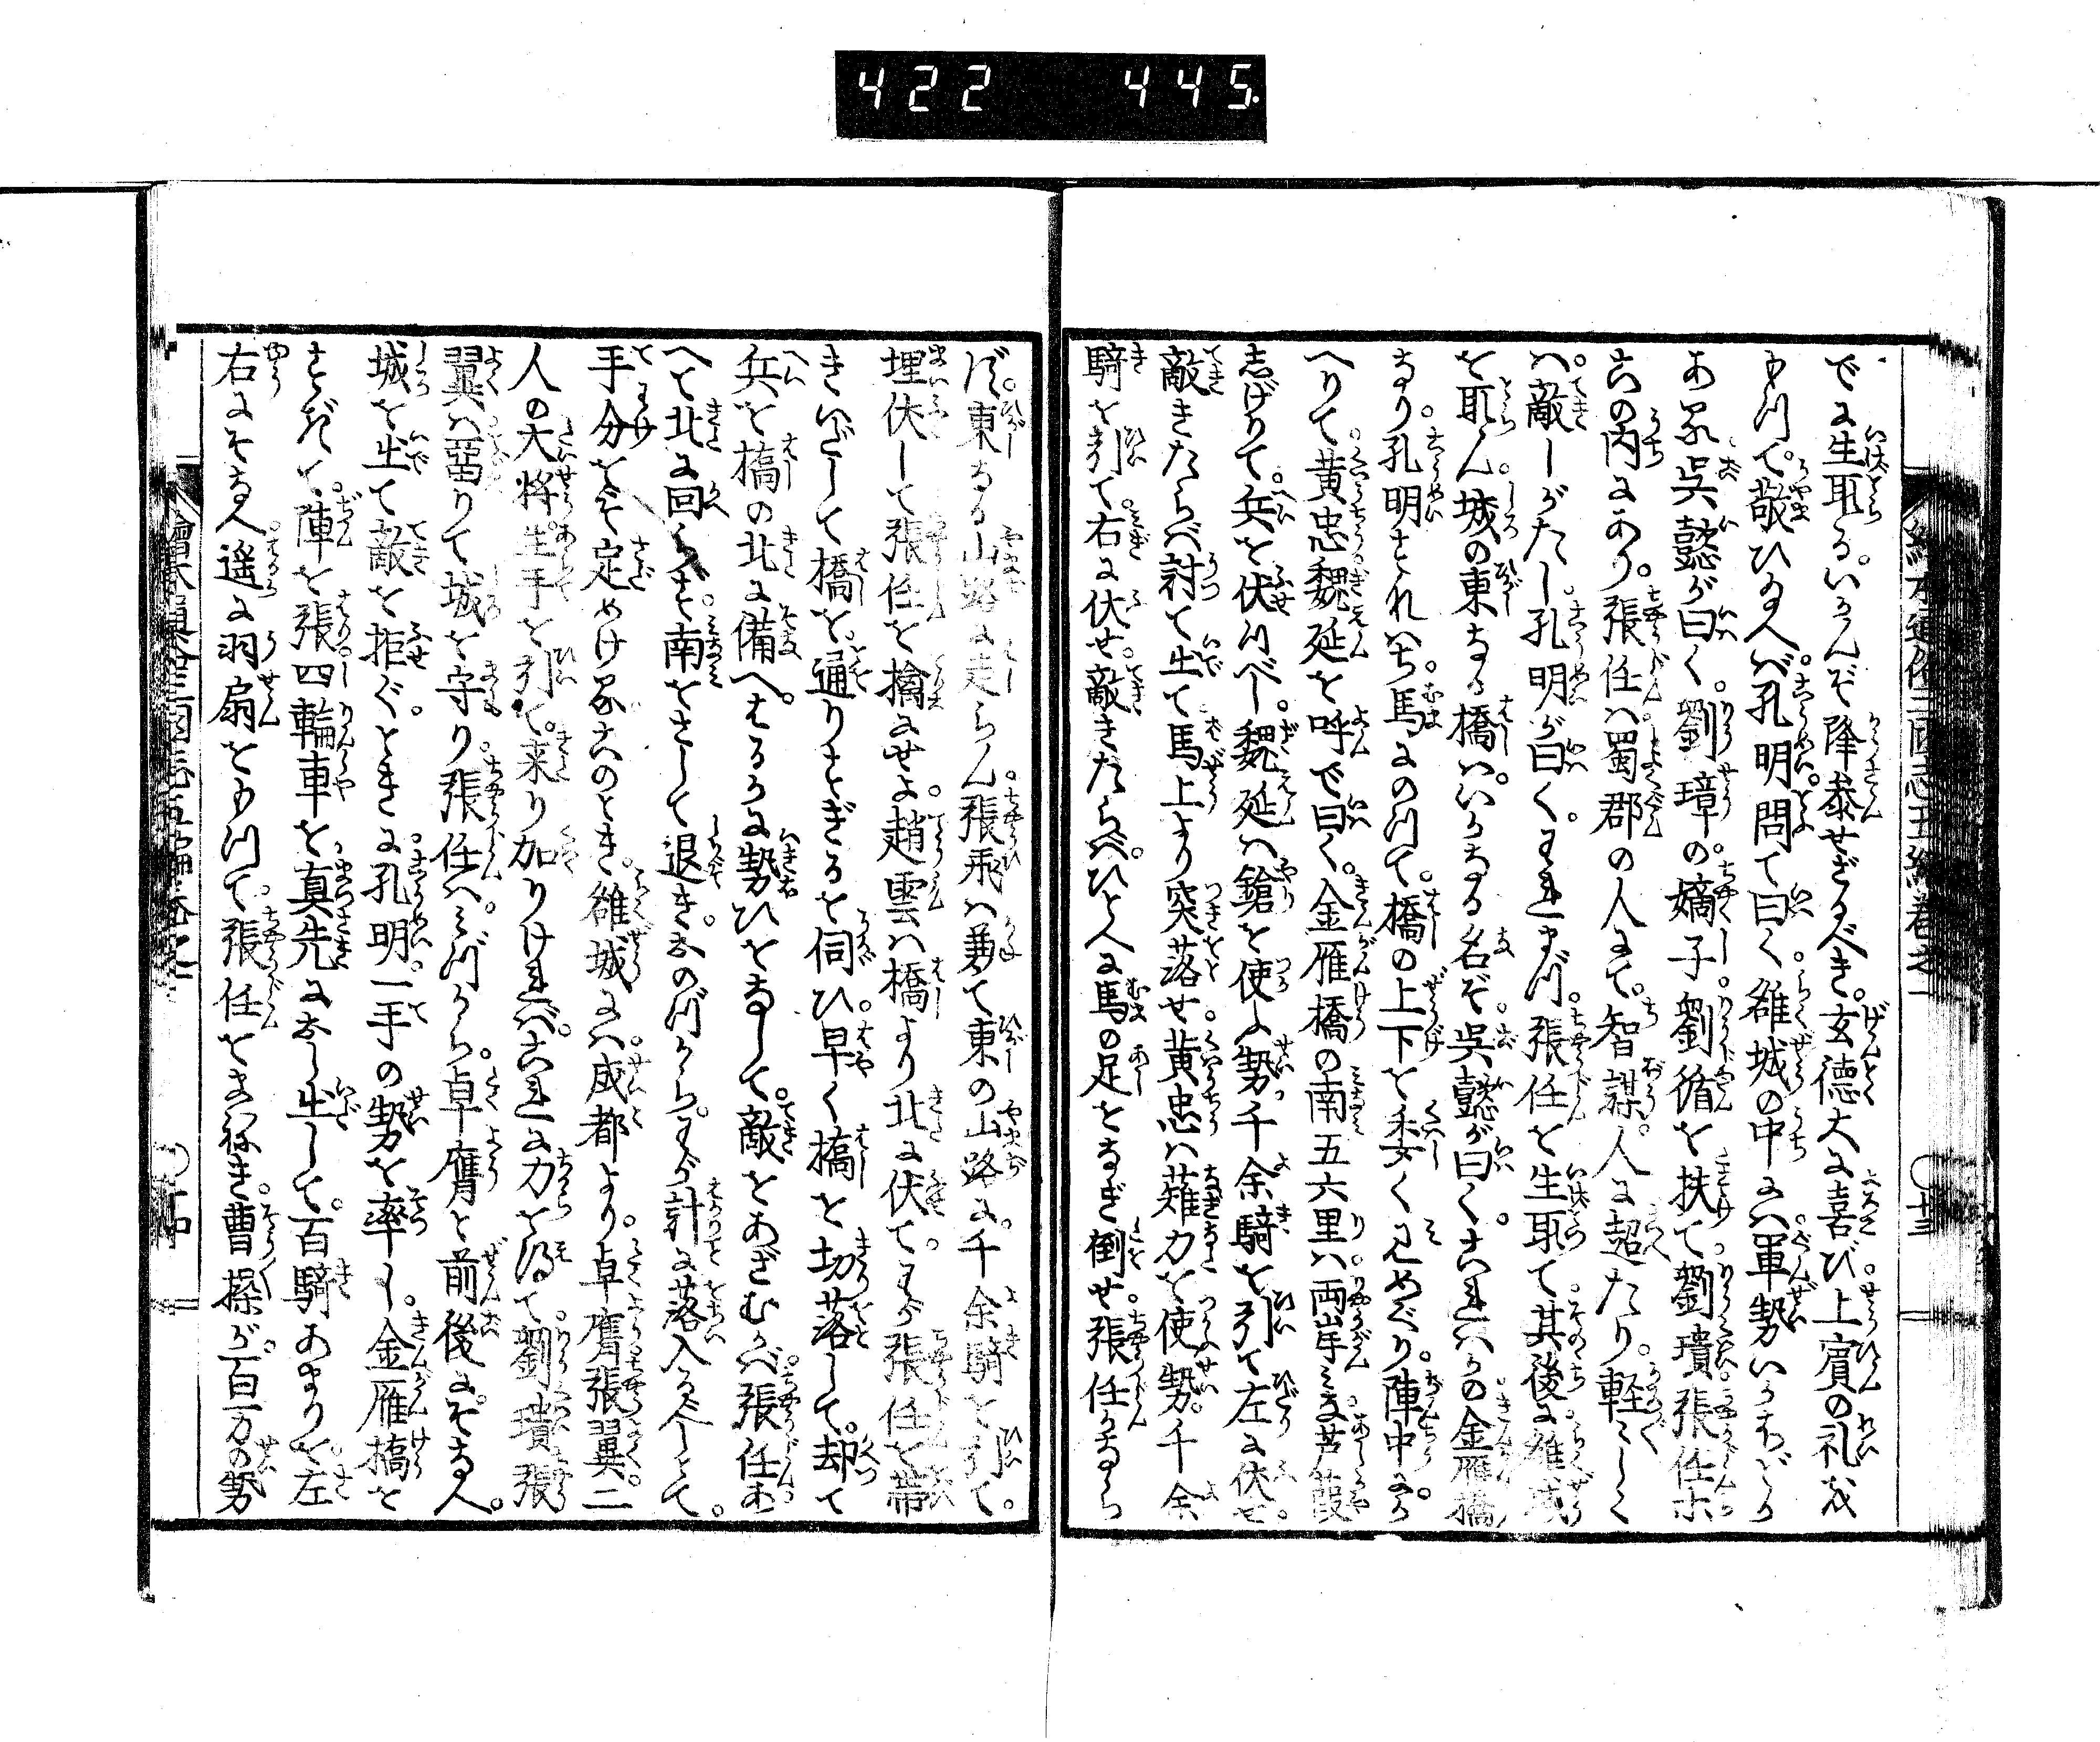 422 445
絵本通俗三国志五編巻之一
○十三
でに生取る。いかんぞ降参せざるべき。玄徳大に喜び。上賓の礼を
もつて。敬ひ給へバ。孔明問て曰く。雒城の中にハ。軍勢いかほどか
ある。呉懿が曰く。劉璋の嫡子。劉循を扶て。劉璝。張任ホ
この内にあり。張任ハ蜀郡の人にて。智謀。人に超たり。軽〻しく
ハ。敵しがたし。孔明が曰く。われまづ。張任を生取て。其後に雒城
を取ん。城の東なる橋ハ。いかなる名ぞ。呉懿が曰く。これハかの金雁橋
なり。孔明すなハち。馬にのつて。橋の上下を委く見めぐり。陣中にか
へりて。黄忠魏延を呼で曰く。金雁橋の南五六里ハ。両岸ミな芦葭
しげりて。兵を伏つべし。魏延ハ鎗を使ふ勢。千余騎を引て左に伏せ。
敵きたらバ討て出て。馬上より突落せ。黄忠ハ薙刀を使ふ勢。千余
騎を引て。右に伏せ。敵きたらバ。ひとへに馬の足をなぎ倒せ。張任かなら
ず。東なる山路に走らん。張飛ハ兼て東の山路に。千余騎を引て。
埋伏して張任を擒にせよ。趙雲ハ橋より北に伏て。わが張任を帯
きいだして橋を。通りすぎるを伺ひ。早く橋を切落して。却て
兵を橋の北に備へ。はるかに勢ひをなして。敵をあざむかバ。張任あ
へて北に回らず。南をさして退き。おのづから。わが計に落入べしとて。
手分をぞ定めける。このとき。雒城にハ。成都より。卓膺張翼二
人の大将。生手を引て。来り加りけれバ。これに力を得て。劉璝張
翼ハ。留りて城を守り。張任ハ。ミづから。卓膺と前後にそなへ。
城を出て敵を拒ぐ。ときに。孔明。一手の勢を率し。金雁橋を
すぎて。陣を張。四輪車を真先におし出して。百騎あまりを左
右にそなへ。遥に羽扇をもつて。張任をまねき。曹操が。百万の勢
絵本通俗三国志五編巻之一
○十四